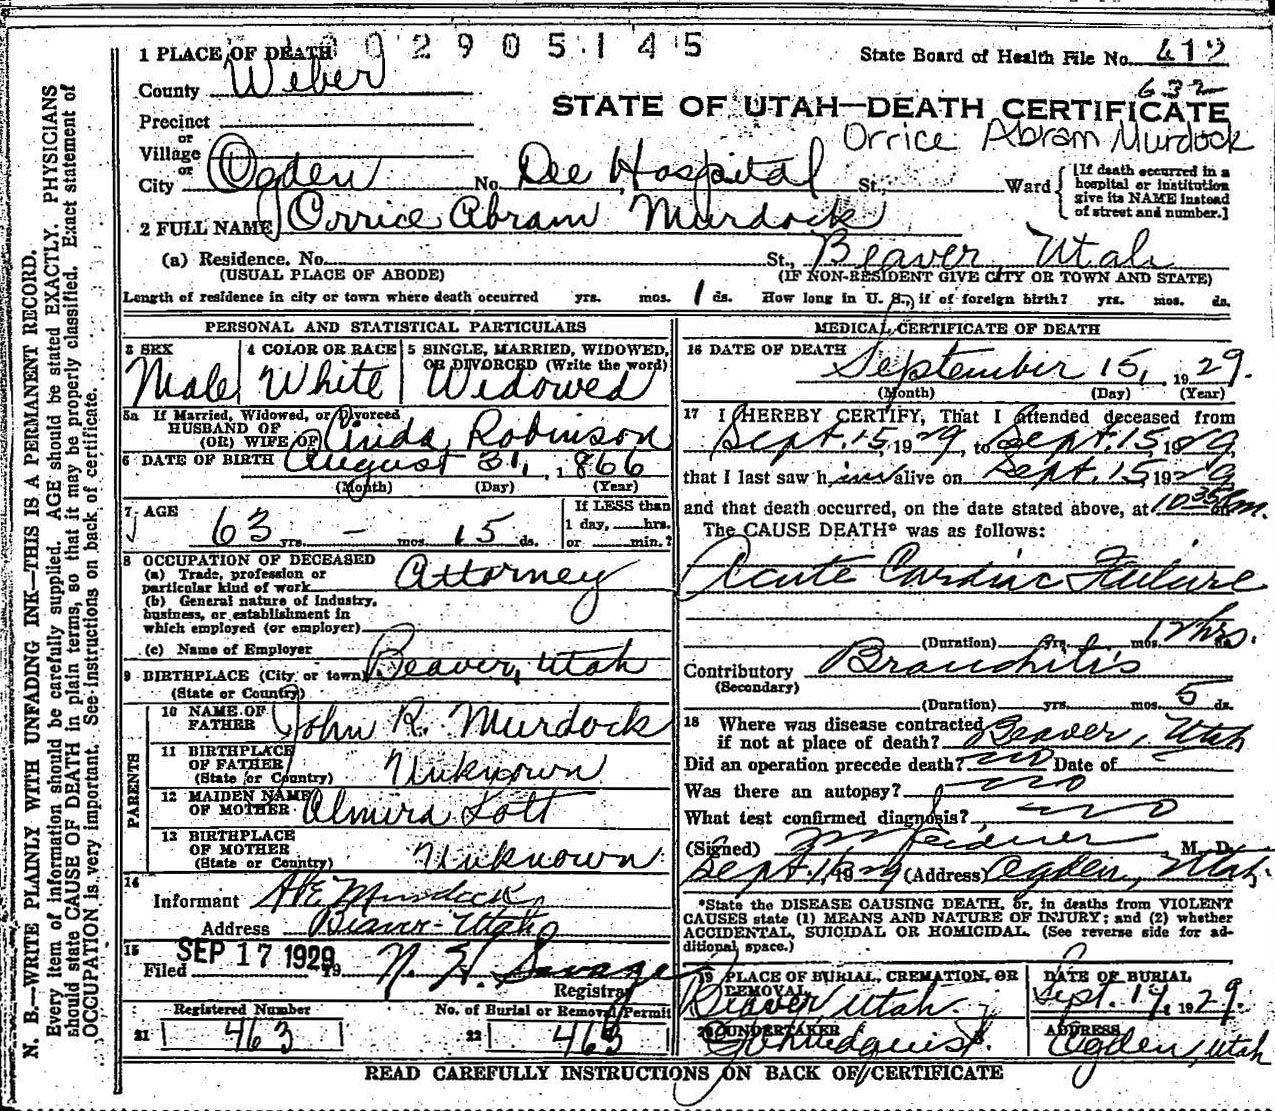 002905145
1 PLACE OF DEATH
State Board of Health File No.
County Weber
632
STATE OF UTAH—DEATH CERTIFICATE
Precinct
Orrice Abram Murdock
or
Village
or
City Ogden No. Dee Hospital St., Ward
[If death occurred in a
hospital or institution
give its NAME instead
of street and number.]
2 FULL NAME Orrice Abram Murdock
(a) Residence. No. St., Beaver, Utah
(USUAL PLACE OF ABODE) (IF NON-RESIDENT GIVE CITY OR TOWN AND STATE)
Length of residence in city or town where death occurred yrs. mos. 1 ds. How long in U. S., if of foreign birth? yrs. mos. ds.
PERSONAL AND STATISTICAL PARTICULARS
3 SEX
Male
4 COLOR OR RACE
White
5 SINGLE, MARRIED, WIDOWED,
OR DIVORCED (Write the word)
Widowed
5a If Married, Widowed, or Divorced
HUSBAND OF
(OR) WIFE OF Linda Robinson
6 DATE OF BIRTH August 31, 1866
(Month) (Day) (Year)
7 AGE
63 yrs. — mos. 15 ds.
If LESS than
1 day, hrs.
or min.?
8 OCCUPATION OF DECEASED
(a) Trade, profession or
particular kind of work Attorney
(b) General nature of Industry,
business, or establishment in
which employed (or employer)
(c) Name of Employer
9 BIRTHPLACE (City or town) Beaver, Utah
(State or Country)
PARENTS
10 NAME OF
FATHER John R. Murdock
11 BIRTHPLACE
OF FATHER
(State or Country) Unknown
12 MAIDEN NAME
OF MOTHER Almira Lott
13 BIRTHPLACE
OF MOTHER
(State or Country) Unknown
14
Informant Murdock
Address Beaver-Utah
15
Filed SEP 17 1929 19 N. H. Savage
Registrar
Registered Number
21 463
No. of Burial or Removal Permit
22 463
MEDICAL CERTIFICATE OF DEATH
16 DATE OF DEATH
September 15, 1929.
(Month) (Day) (Year)
17 I HEREBY CERTIFY, That I attended deceased from
Sept. 15, 1929, to Sept. 15, 1929,
that I last saw him alive on Sept. 15 1929
and that death occurred, on the date stated above, at 10 35 m.
The CAUSE DEATH* was as follows:
Acute Cardiac Failure
(Duration) yrs. mos. 12 hrs. ds.
Contributory Bronchitis
(Secondary)
(Duration) yrs. mos. 5 ds.
18 Where was disease contracted
if not at place of death? Beaver, Utah
Did an operation precede death? no Date of —
Was there an autopsy? no
What test confirmed diagnosis? no
(Signed) M. D.
Sept. 1929 (Address) Ogden, Utah.
*State the DISEASE CAUSING DEATH, or, in deaths from VIOLENT
CAUSES state (1) MEANS AND NATURE OF INJURY; and (2) whether
ACCIDENTAL, SUICIDAL OR HOMICIDAL. (See reverse side for ad-
ditional space.)
19 PLACE OF BURIAL, CREMATION, OR
REMOVAL
Beaver Utah.
DATE OF BURIAL
Sept. 17, 1929.
20 UNDERTAKER
Lindquist.
ADDRESS
Ogden, Utah
READ CAREFULLY INSTRUCTIONS ON BACK OF CERTIFICATE
N. B.—WRITE PLAINLY WITH UNFADING INK—THIS IS A PERMANENT RECORD.
Every item of information should be carefully supplied. AGE should be stated EXACTLY. PHYSICIANS
should state CAUSE OF DEATH in plain terms, so that it may be properly classified. Exact statement of
OCCUPATION is very important. See instructions on back of certificate.